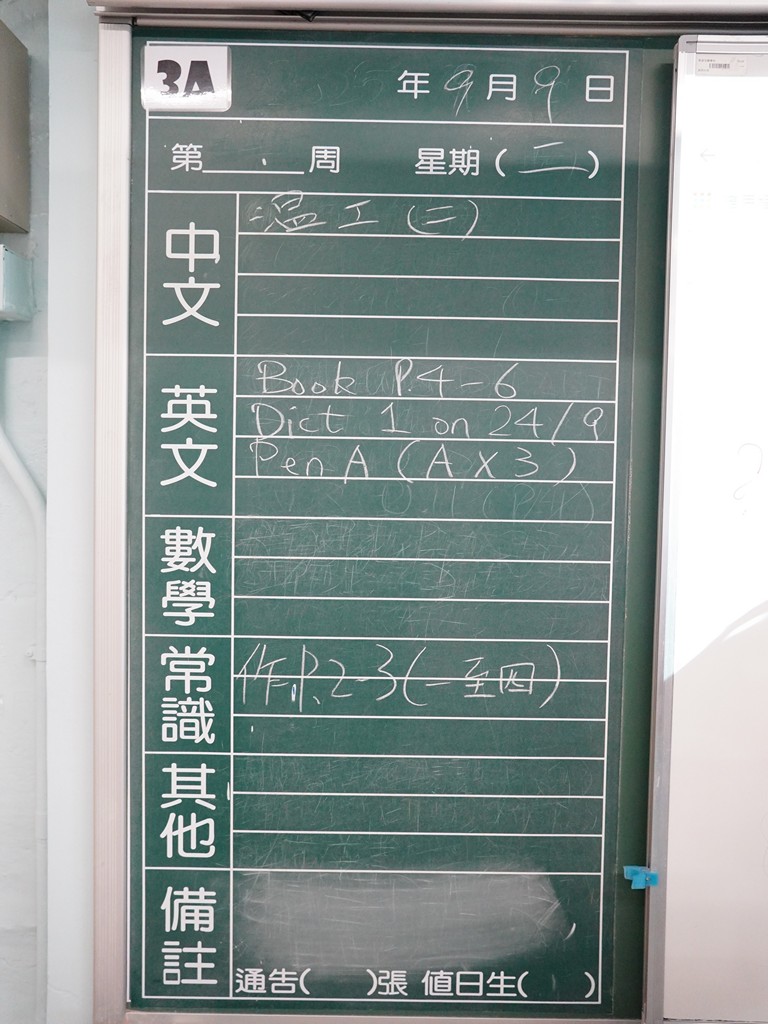 3A
年9月9日
第______周 星期(二)
中文
温工(二)
英文
Book P.4-6
Dict 1 on 24/9
Pen A (A x 3)
數學
常識
作P.2-3(一至四)
其他
備註
通告( )張 值日生( )